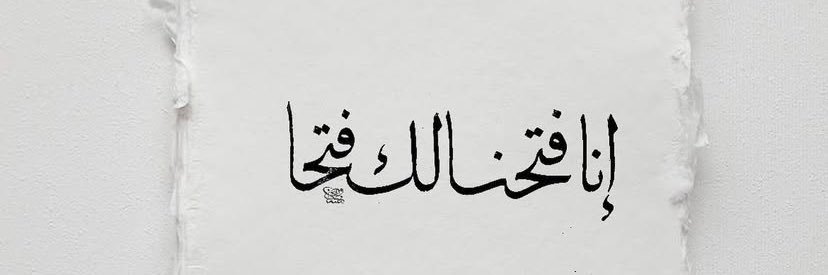 إنا فتحنا لك فتحا